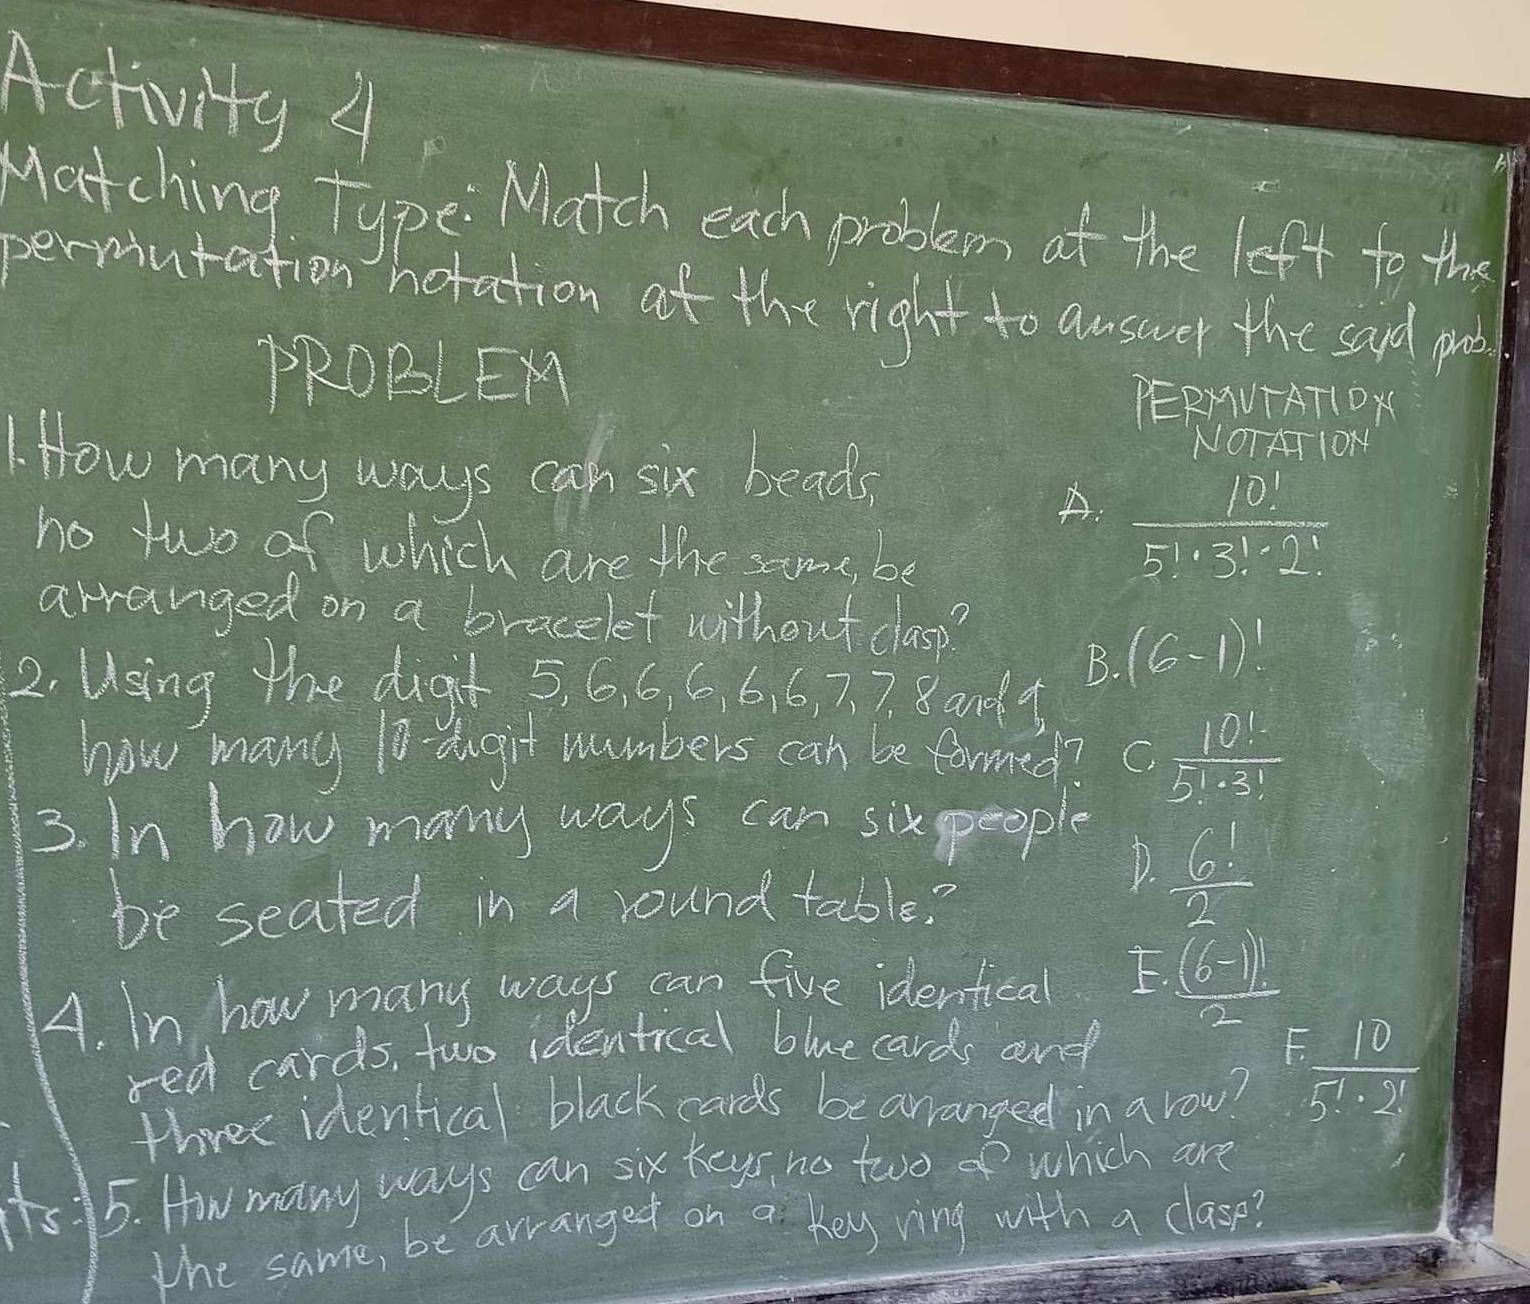 Activity 4
Matching Type: Match each problem at the left to the
permutation notation at the right to answer the said prob.
PROBLEM
PERMUTATION
NOTATION
1. How many ways can six beads,
no two of which are the same, be
arranged on a bracelet without clasp?
2. Using the digit 5, 6, 6, 6, 6, 6, 7, 7, 8 and 9,
how many 10-digit numbers can be formed?
3. In how many ways can six people
be seated in a round table?
4. In how many ways can five identical
red cards, two identical blue cards and
three identical black cards be arranged in a row?
5. How many ways can six keys, no two of which are
the same, be arranged on a key ring with a clasp?
A. 10!
5! · 3! · 2!
B. (6-1)!
C. 10!
5! · 3!
D. 6!
2
E. (6-1)!
2
F. 10
5! · 2!